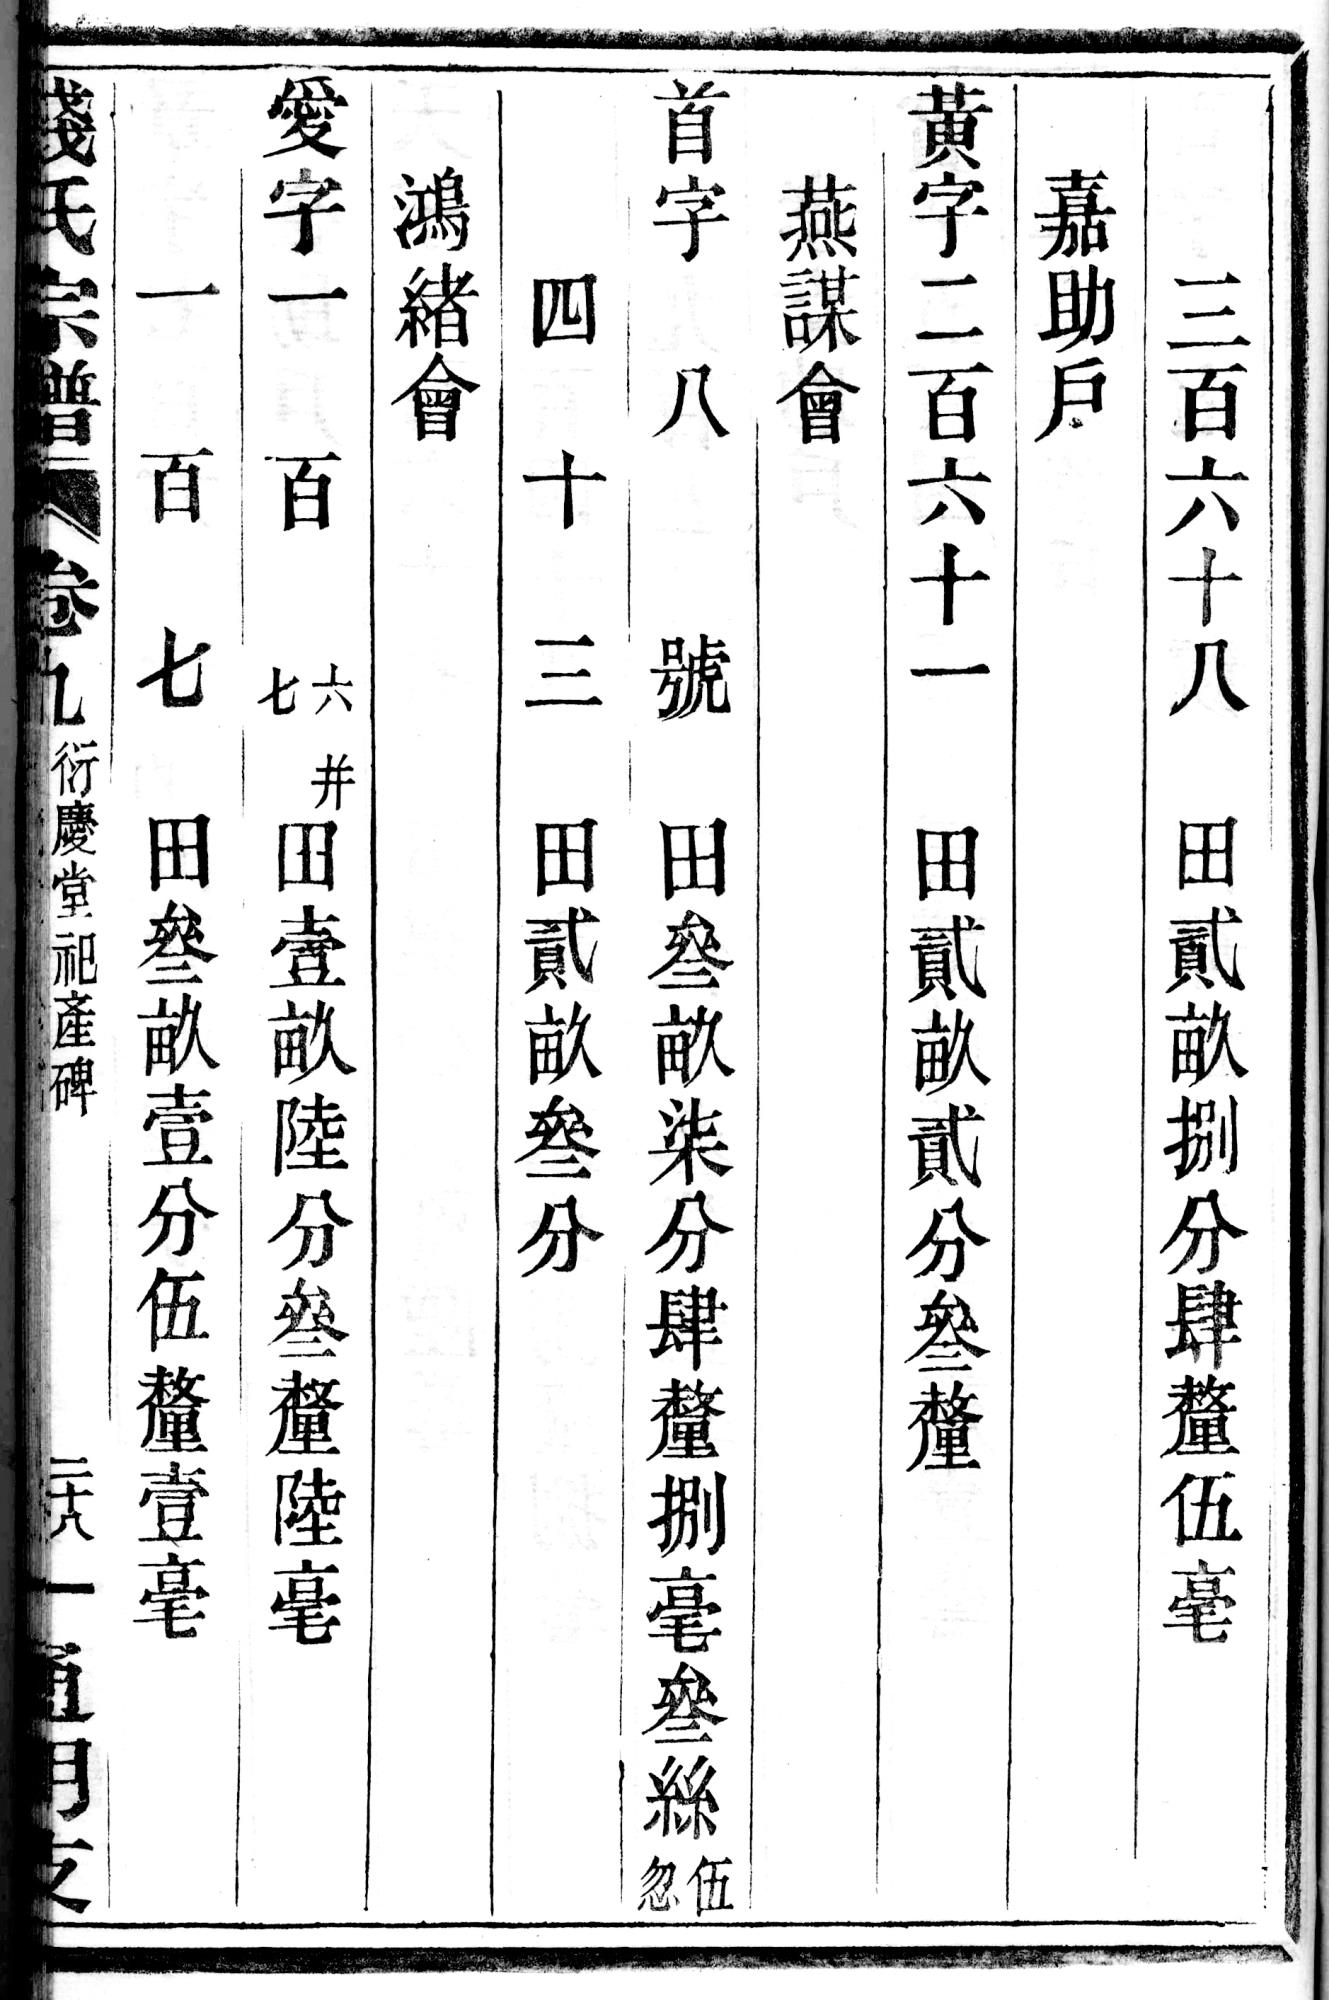 三百六十八 田貳畝捌分肆釐伍毫
嘉助戶
黃字二百六十一 田貳畝貳分叄釐
燕謀會
首字 八 號 田叄畝柒分肆釐捌毫叄絲伍忽
四十三 田貳畝叄分
鴻緒會
愛字一百六七并田壹畝陸分叄釐陸毫
一百七 田叄畝壹分伍釐壹毫
錢氏宗譜 卷九 衍慶堂祀產碑 二十八 通明支